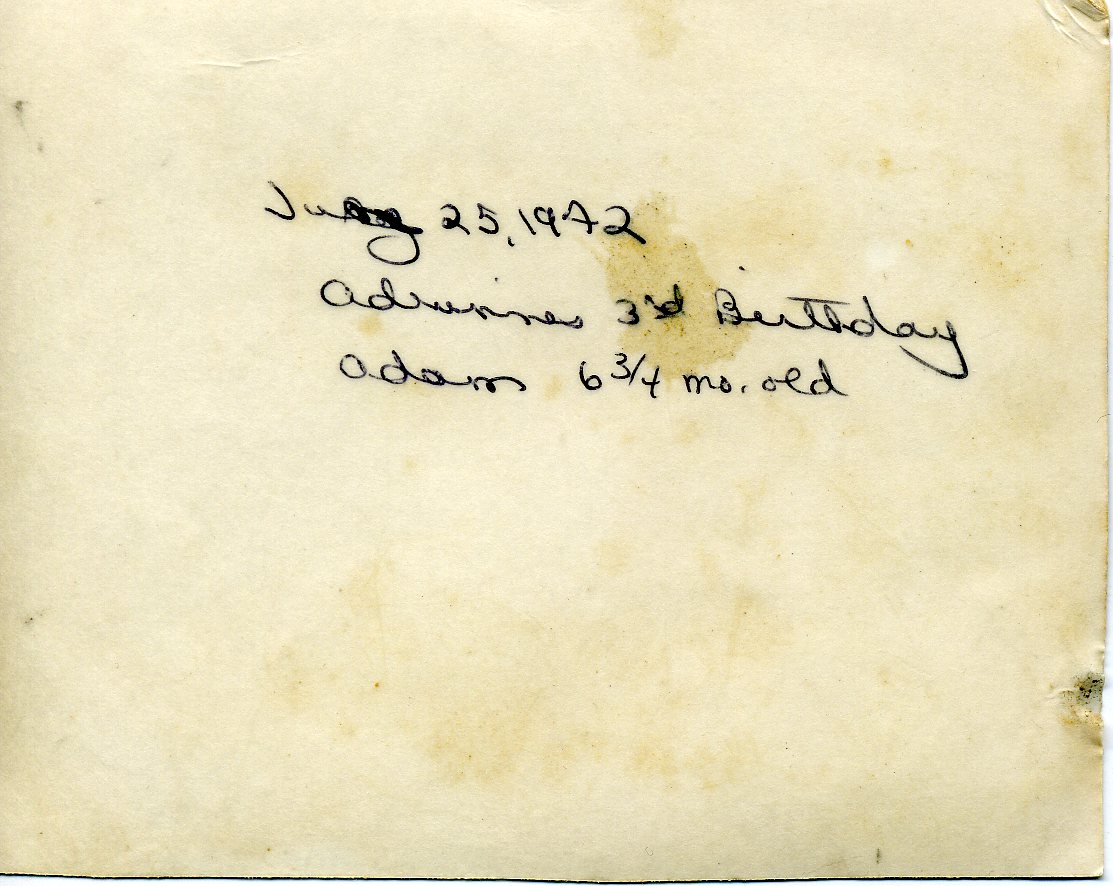 July 25, 1942
Adriennes 3rd Birthday
Adam 6 3/4 mo. old